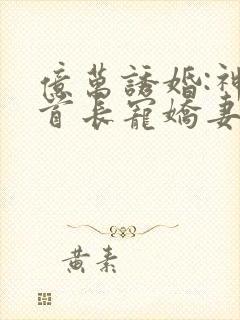 億萬誘婚:神
首長寵嬌妻
黃素